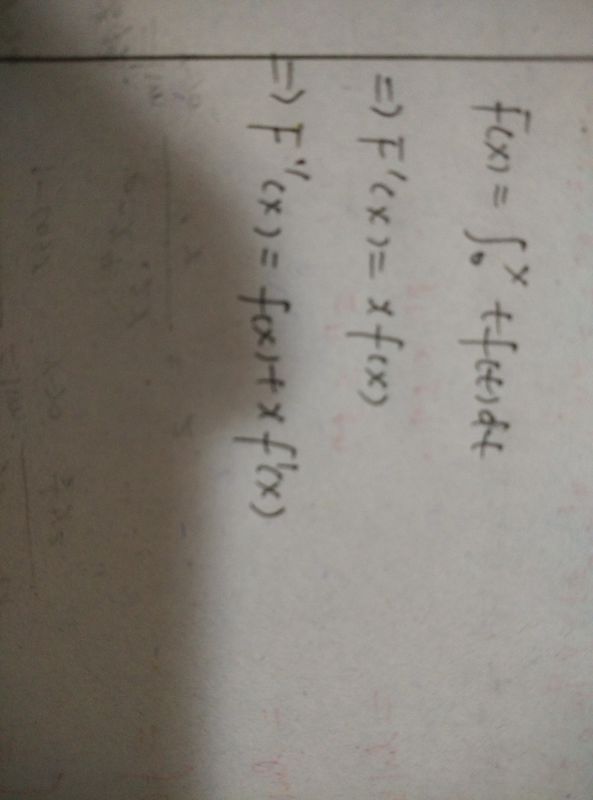 F(x) = ∫₀ˣ t f(t) dt
⇒ F'(x) = x f(x)
⇒ F''(x) = f(x) + x f'(x)